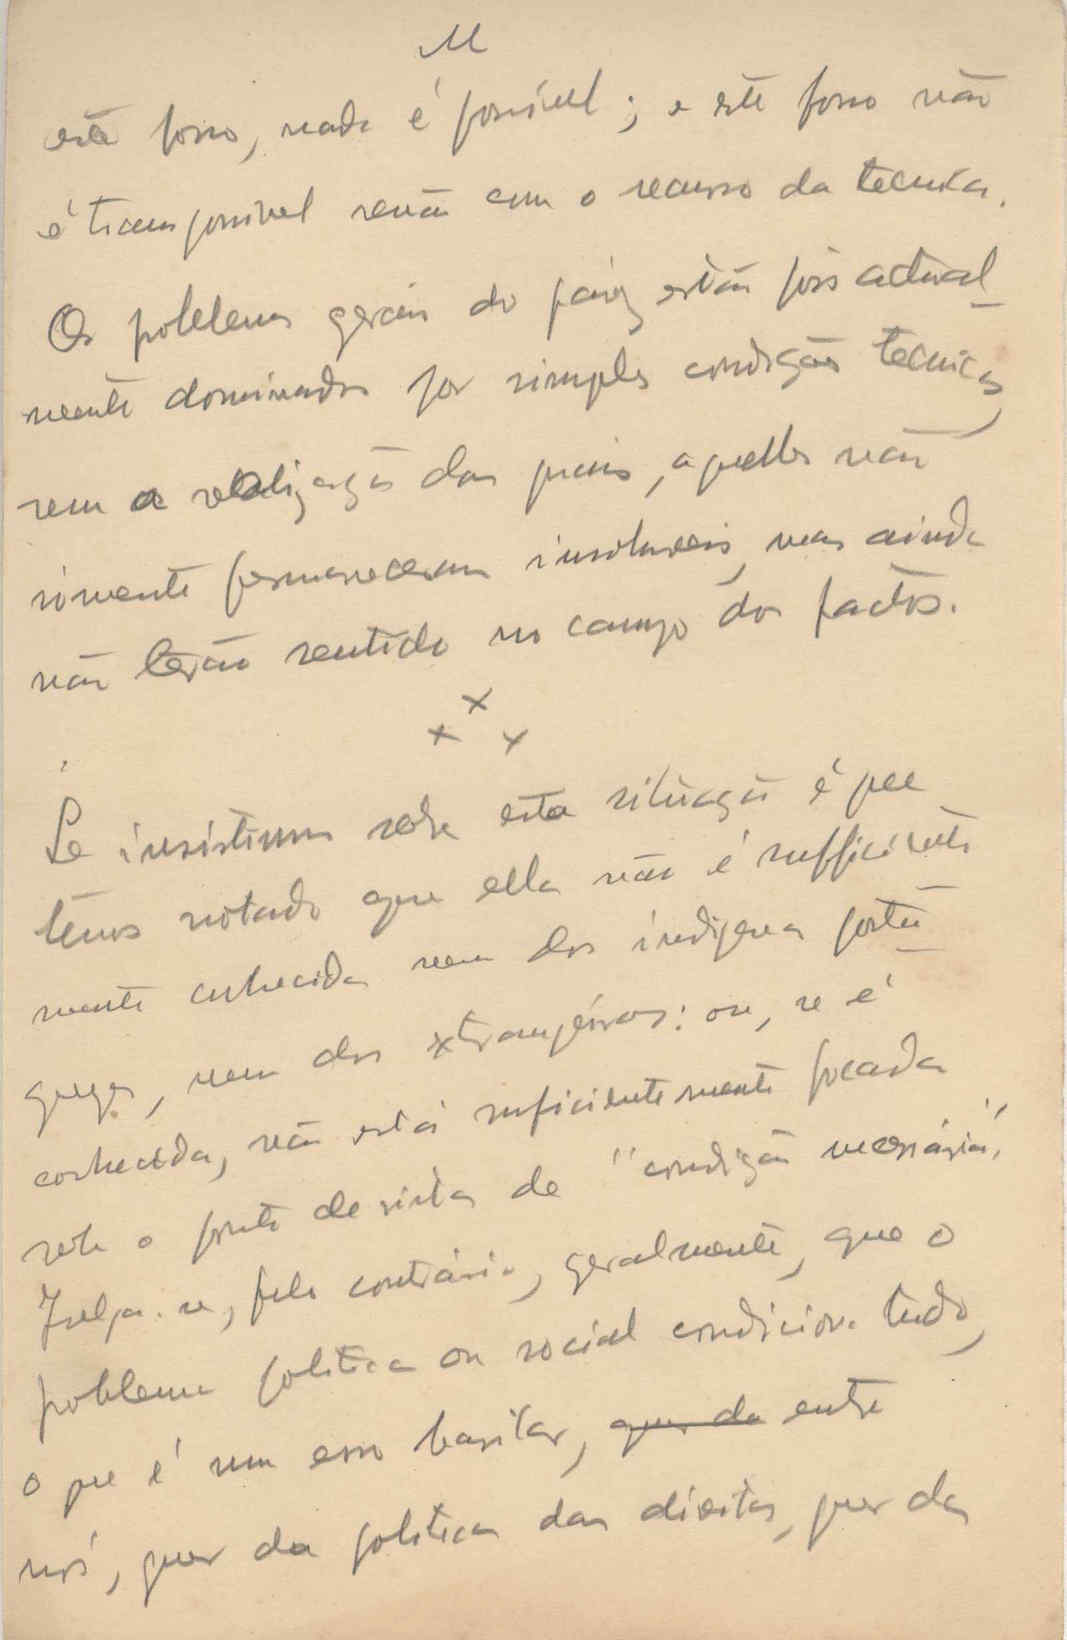 M
este fosso, nada é possivel; e este fosso não
é transponivel senão com o recurso da tecnica.
Os problemas gerais do paiz estão pois actual-
mente dominados por simples condições tecnicas,
sem a realização das quais, aquelles não
somente permaneceram insoluveis, mas ainda
não terão sentido no campo dos factos.
x x x
Se insistimos sobre esta situação é que
temos notado que ella não é sufficiente
mente conhecida nem dos indigenas portu-
guezes, nem dos extrangeiros: ou, se é
conhecida, não está suficientemente focada
sob o ponto de vista de "condição necessária".
Julga-se, pelo contrário, geralmente, que o
problema politico ou social condiciona tudo,
o que é um erro basilar, quer da entre
nós, quer da politica das direitas, quer da